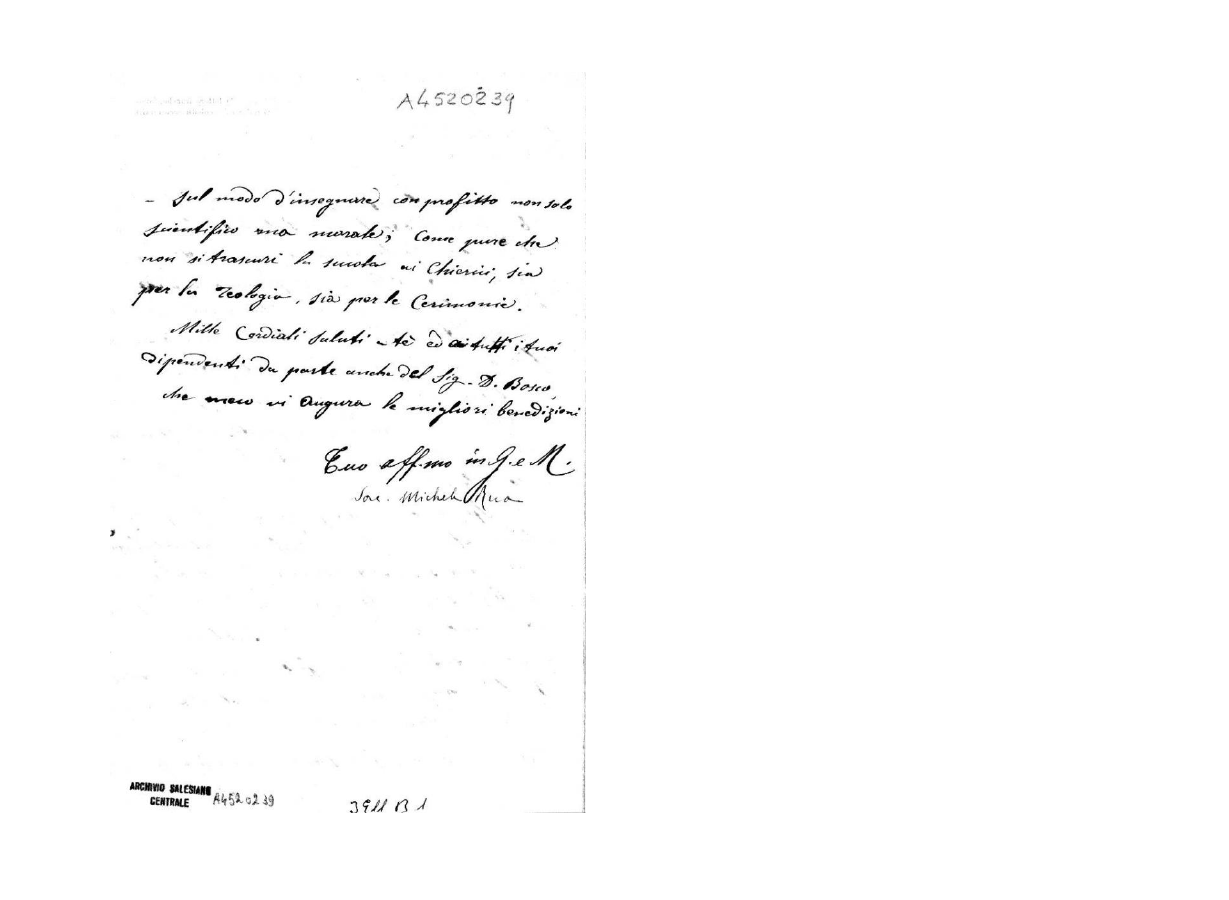 A4520239
- sul modo d'insegnare con profitto non solo
scientifico ma morale; Come pure che
non si trascuri la scuola ai Chierici, sia
per la Teologia, sia per le Cerimonie.
Mille Cordiali saluti a te ed ai tutti i tuoi
dipendenti da parte anche del Sig. D. Bosco,
che meco vi augura le migliori benedizioni
Tuo aff.mo in G. e M.
Sac. Michele Rua
ARCHIVIO SALESIANO
CENTRALE
A4520239
3911 B 1